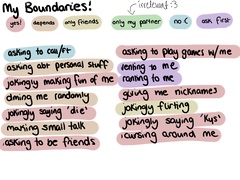 My Boundaries!
irrelevant :3
yes! depends only friends only my partner no :( ask first
asking to call/FT
asking abt personal stuff
jokingly making fun of me
dming me randomly
jokingly saying 'die'
making small talk
asking to be friends
asking to play games w/me
venting to me
ranting to me
giving me nicknames
jokingly flirting
jokingly saying 'kys'
cursing around me